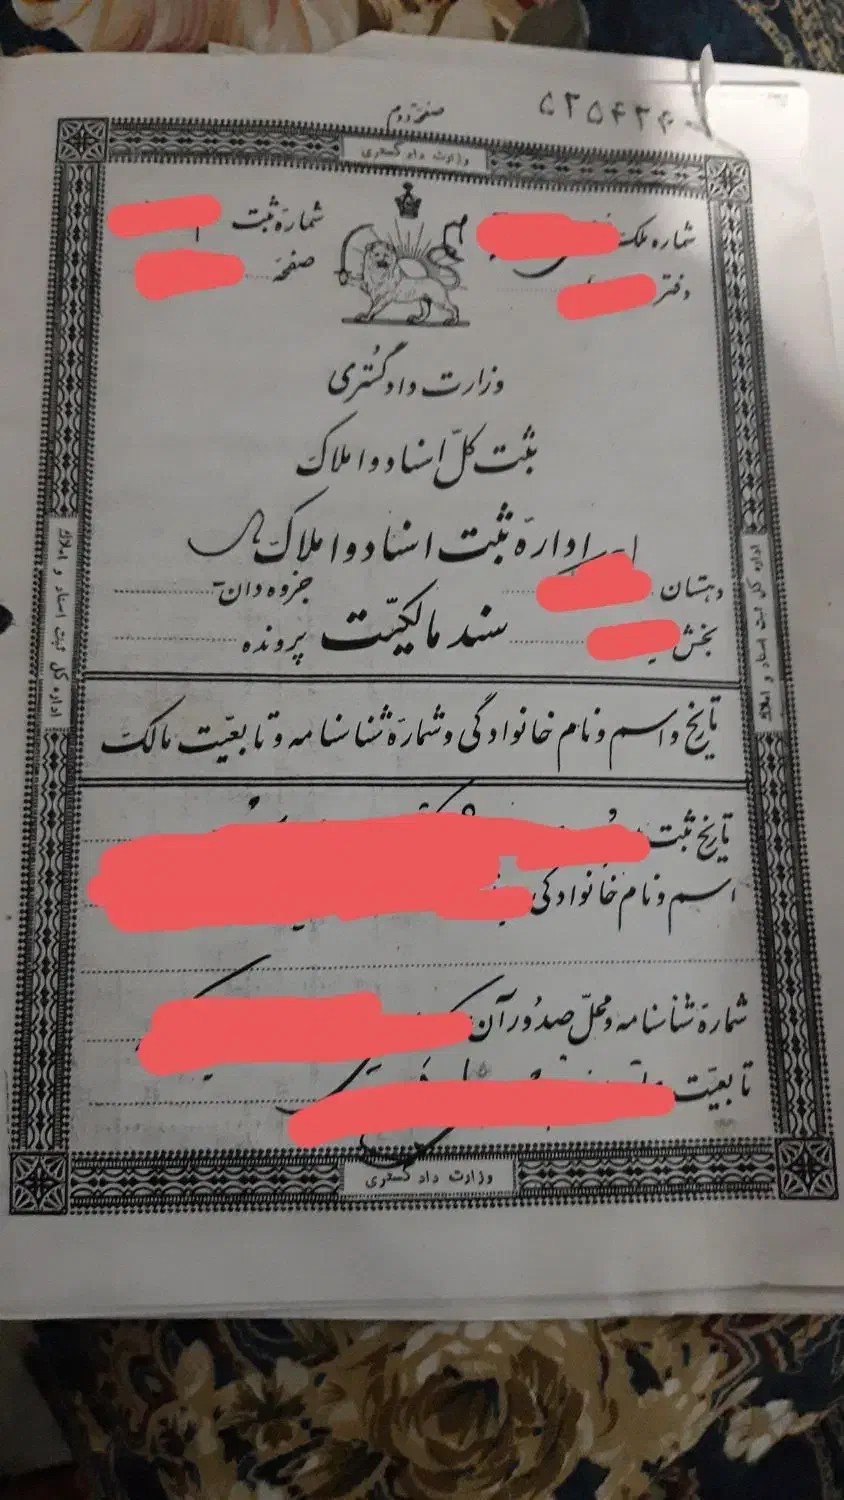 صفحه دوم
۵۲۵۴۲۴۰
وزارت دادگستری
شماره ملک
شماره ثبت
دفتر
صفحه
وزارت دادگستری
ثبت کل اسناد و املاک
اداره ثبت اسناد و املاک
دهستان
جزوه دان
بخش
سند مالکیت
پرونده
تاریخ و اسم و نام خانوادگی و شماره شناسنامه و تابعیت مالک
تاریخ ثبت
اسم و نام خانوادگی
شماره شناسنامه و محل صدور آن
تابعیت
وزارت دادگستری
اداره کل ثبت اسناد و املاک
اداره کل ثبت اسناد و املاک